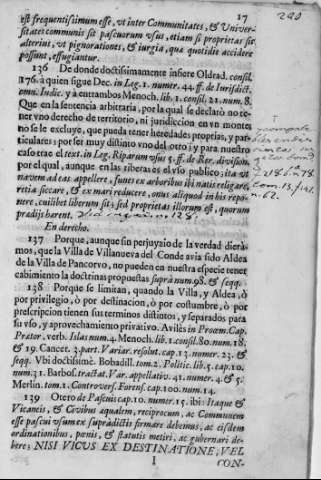 17
est frequentissimum esse, vt inter Communitates, & Univer-
sitates communis sit pascuorum vsus, etiam si proprietas sit
alterius, vt pignorationes, & iurgia, quæ quotidie accidere
possunt, effugiantur.
136 De donde doctissimamente infiere Oldrad. consil.
176. à quien sigue Dec. in Leg. 1. numer. 44. ff. de Iurisdict.
omn. Iudic. y a entrambos Menoch. lib. 1. consil. 21. num. 8.
Que en la sentencia arbitraria, por la qual se declarò no te-
ner vno derecho de territorio, ni juridiccion en vn monte,
no se le excluye, que pueda tener heredades propias, y pat-
ticulares: por ser muy distinto vno del otro; y para nuestro
caso trae el text. in Leg. Riparum vsus 5. ff. de Rer. division.
por el qual, aunque en las riberas es el vso publico; ita vt
navem ad eas appellere, funes ex arboribus ibi natis religare,
retia siccare, & ex mari reducere, onus aliquod in his repo-
nere, cuilibet liberum sit; sed proprietas illorum est, quorum
prædijs hærent.
En derecho.
137 Porque, aunque sin perjuyzio de la verdad diera-
mos, que la Villa de Villanueva del Conde avia sido Aldea
de la Villa de Pancorvo, no pueden en nuestra especie tener
cabimiento la doctrinas propuestas supra num. 98. & seqq.
138 Porque se limitan, quando la Villa, y Aldea, ò
por privilegio, ò por destinacion, ò por costumbre, ò por
prescripcion tienen sus terminos distintos, y separados para
su vso, y aprovechamiento privativo. Avilès in Proœm. Cap.
Prætor. verb. Islas num. 4. Menoch. lib. 1. consil. 80. num. 18.
& 19. Cancer. 3. part. Variar. resolut. cap. 13. numer. 23. &
seqq. Vbi doctissimè. Bobadill. tom. 2. Politic. lib. 5. cap. 10.
num. 31. Barbos. tractat. Var. appellativ. 41. numer. 4. & 5.
Merlin. tom. 1. Controvers. Forens. cap. 100. num. 14.
139 Otero de Pascuis cap. 10. numer. 15. ibi: Itaque &
Vicaneis, & Civibus æqualem, reciprocum, ac Communem
esse pascui vsum ex supradictis firmare debemus, ac eisdem
ordinationibus, pœnis, & statutis metiri, ac gubernari de-
bere; NISI VICUS EX DESTINATIONE, VEL
I
CON-